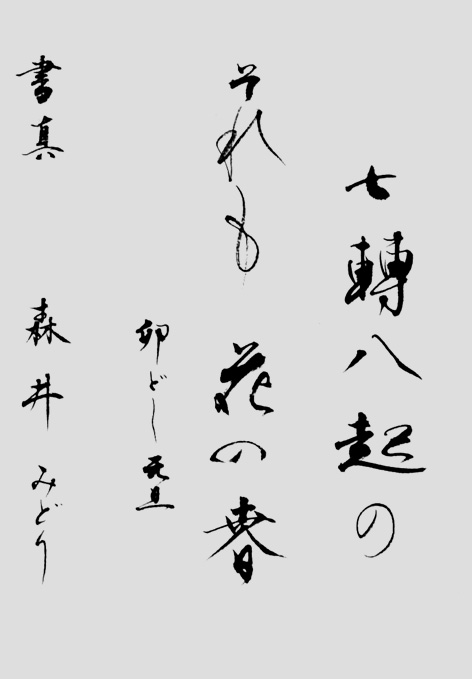 七轉八起の
それも花の春
卯どし元旦
書真 森井みどり